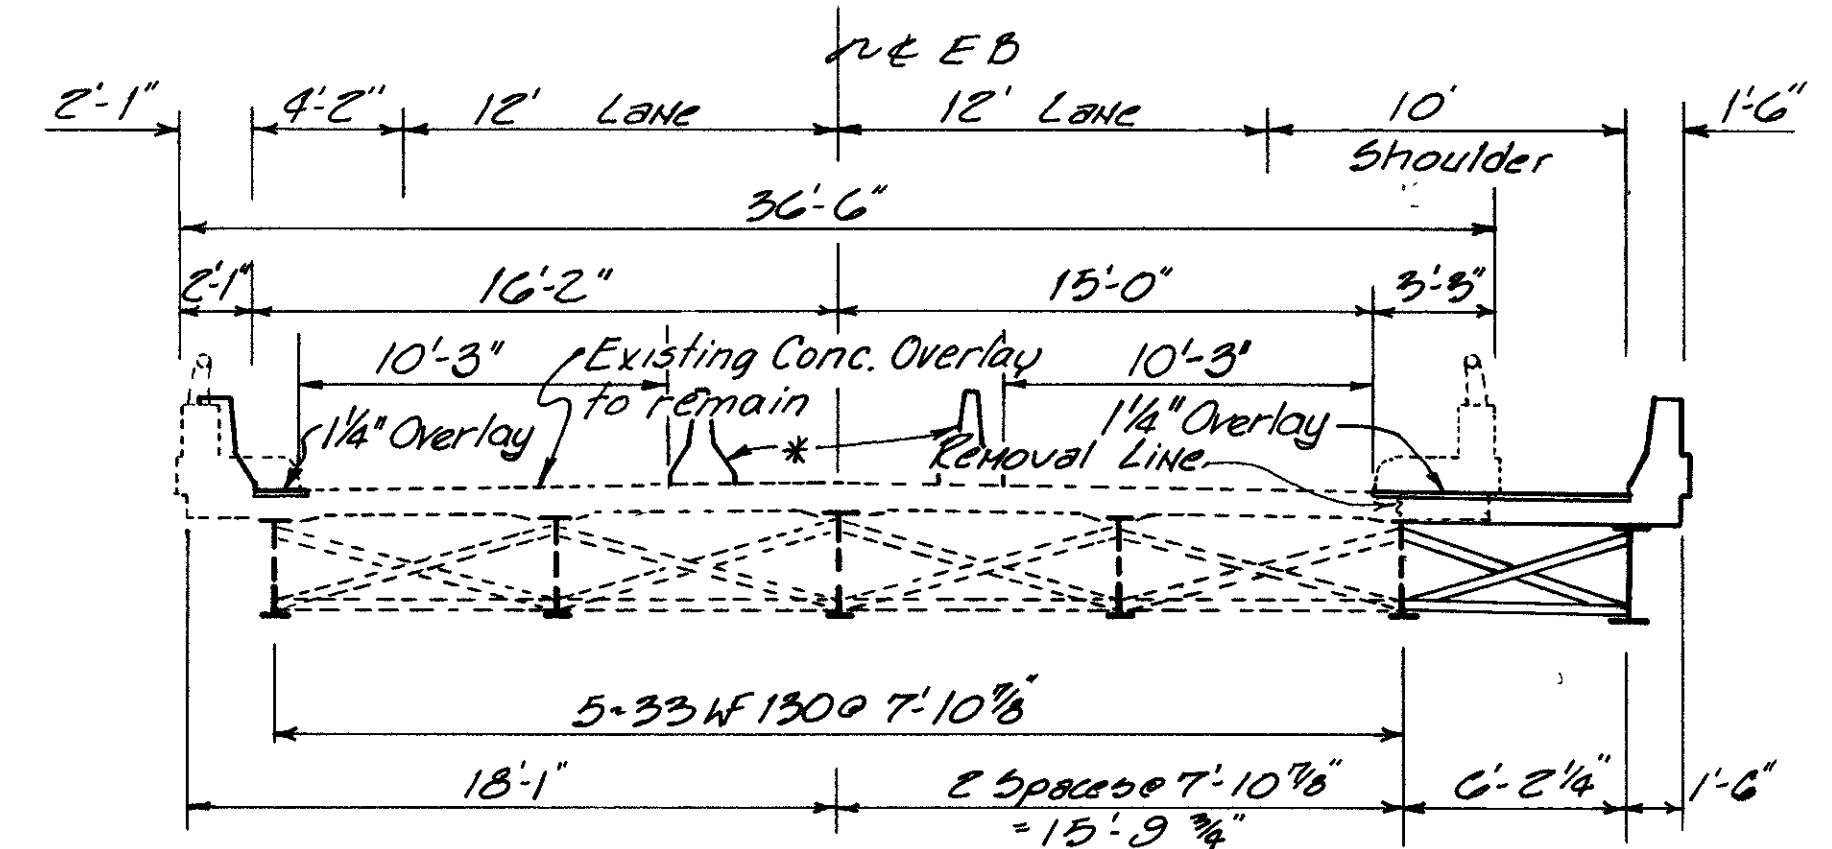 ℄ EB
2'-1"
4'-2"
12' Lane
12' Lane
10'
Shoulder
1'-6"
36'-6"
2'-1"
16'-2"
15'-0"
3'-3"
10'-3"
Existing Conc. Overlay
to remain
10'-3"
1¼" Overlay
*
Removal Line
1¼" Overlay
5~33 WF 130@ 7'-10⅞"
18'-1"
2 Spaces@ 7'-10⅞"
= 15'-9¾"
6'-2¼"
1'-6"